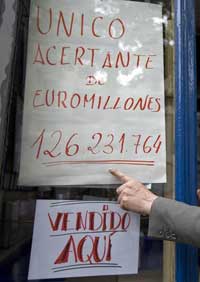 UNICO
ACERTANTE
DE
EUROMILLONES
126.231.764
VENDIDO
AQUÍ